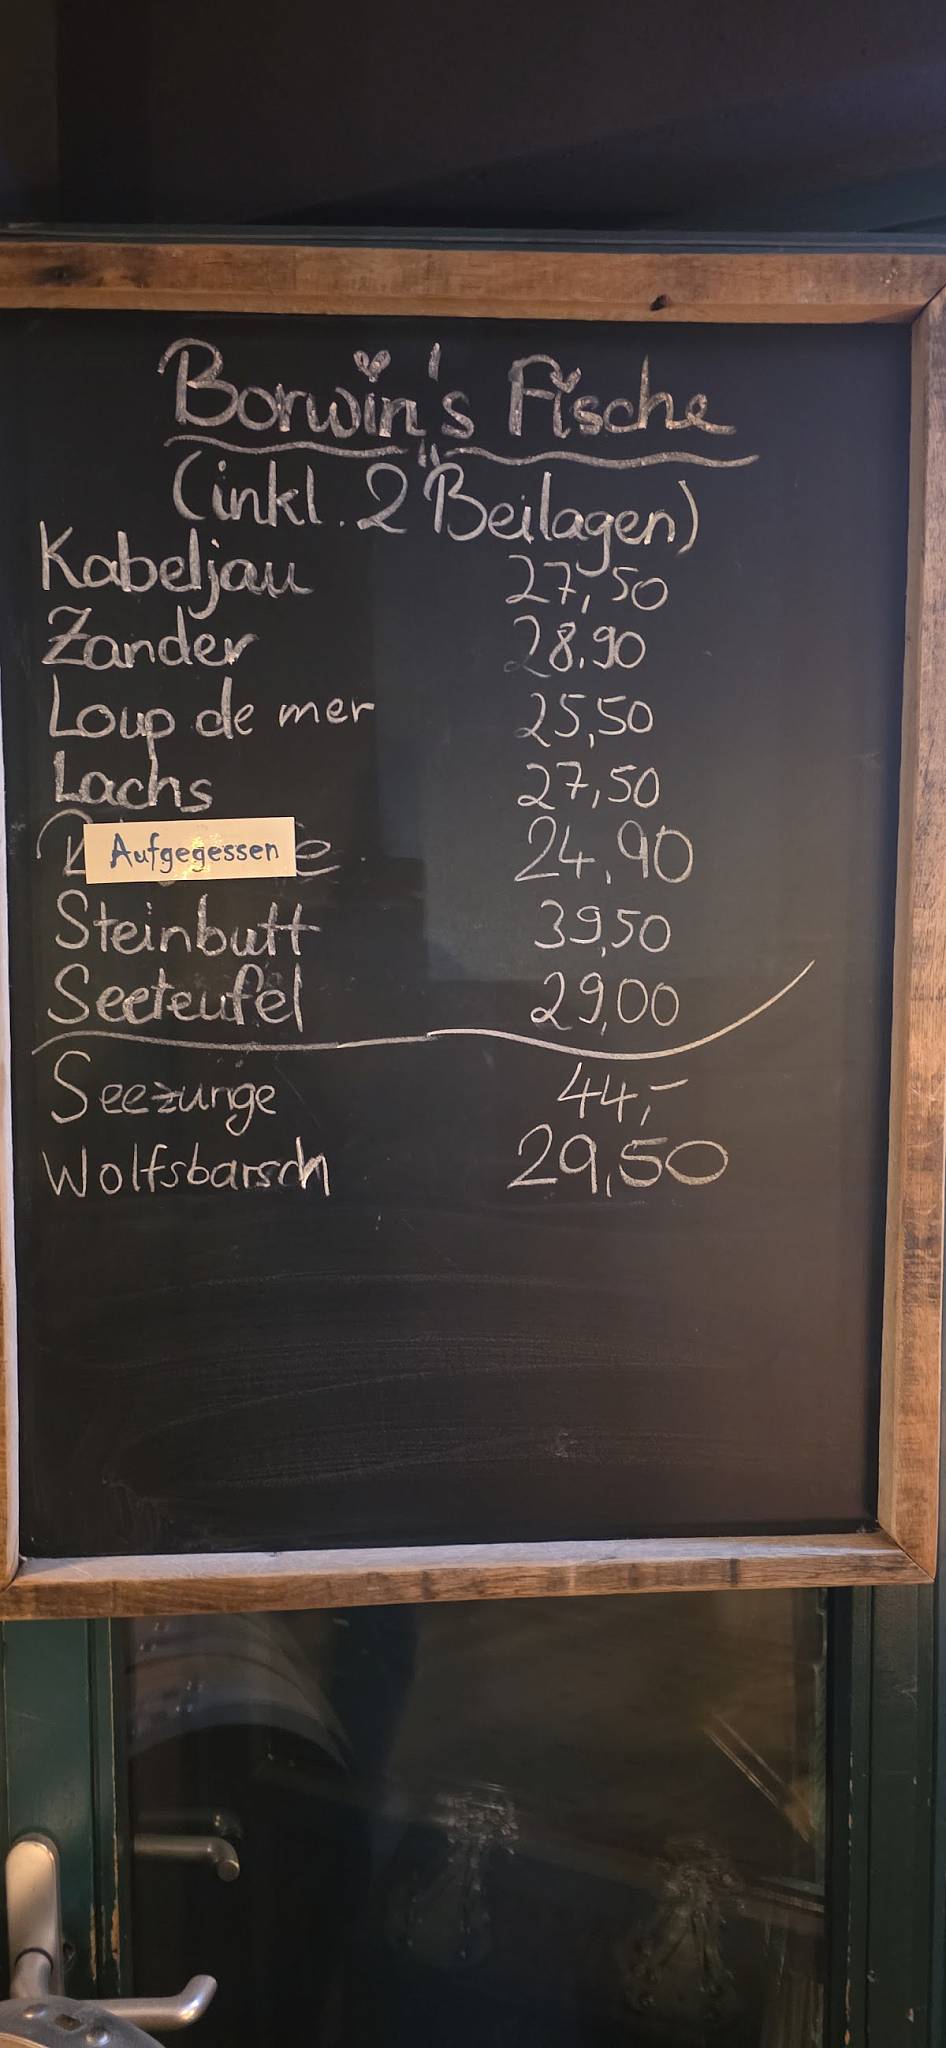 Borwin's Fische
(inkl. 2 Beilagen)
Kabeljau 27,50
Zander 28,90
Loup de mer 25,50
Lachs 27,50
Aufgegessen 24,90
Steinbutt 39,50
Seeteufel 29,00
Seezunge 44,-
Wolfsbarsch 29,50